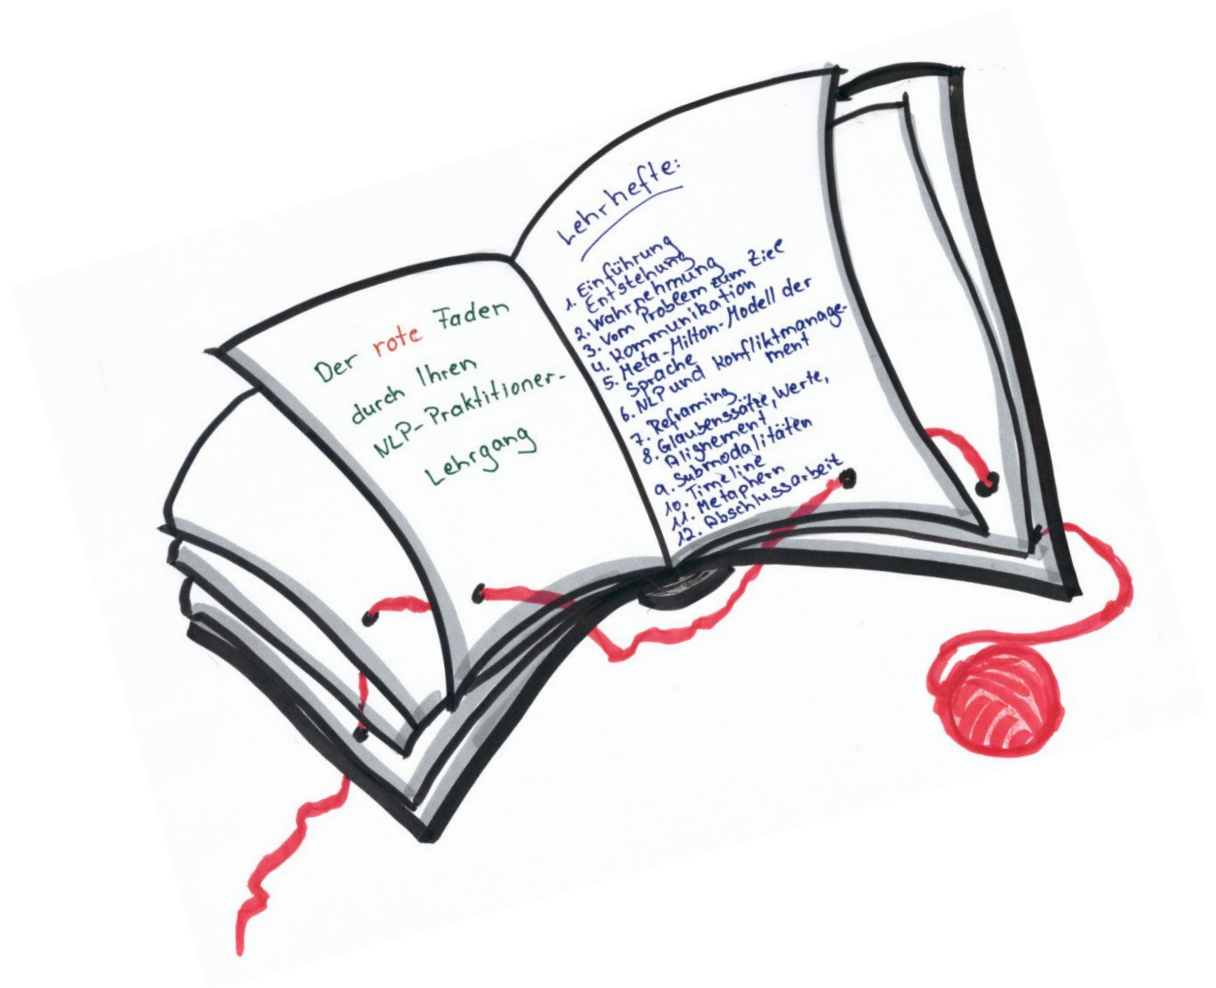 Der rote Faden
durch Ihren
NLP-Praktitioner-
Lehrgang
Lehrhefte:
1. Einführung
Entstehung
2. Wahrnehmung
3. Vom Problem zum Ziel
4. Kommunikation
5. Meta-Milton-Modell der
Sprache
6. NLP und Konfliktmanage-
ment
7. Reframing
8. Glaubenssätze, Werte,
Alignement
9. Submodalitäten
10. Timeline
11. Metaphern
12. Abschlussarbeit